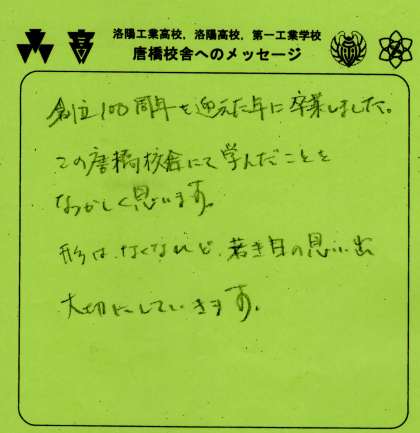 洛陽工業高校，洛陽高校，第一工業学校
唐橋校舎へのメッセージ
創立100周年を迎えた年に卒業しました。
この唐橋校舎にて学んだことを
なつかしく思います。
形は、なくなれど、若き日の思い出
大切にしていきます。